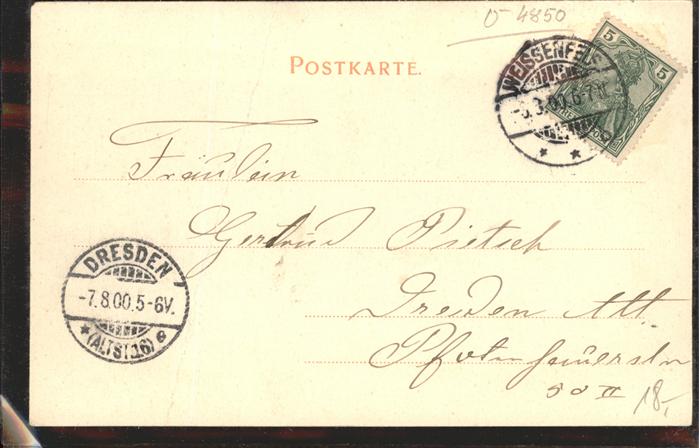 D-4850
POSTKARTE.
5 5
WEISSENFELS
Fräulein
Gertrud Pietsch
Dresden Alt.
Pfotenhauerstr
50 II
18,-
DRESDEN
-7.8.00.5-6V.
(ALTST.16)